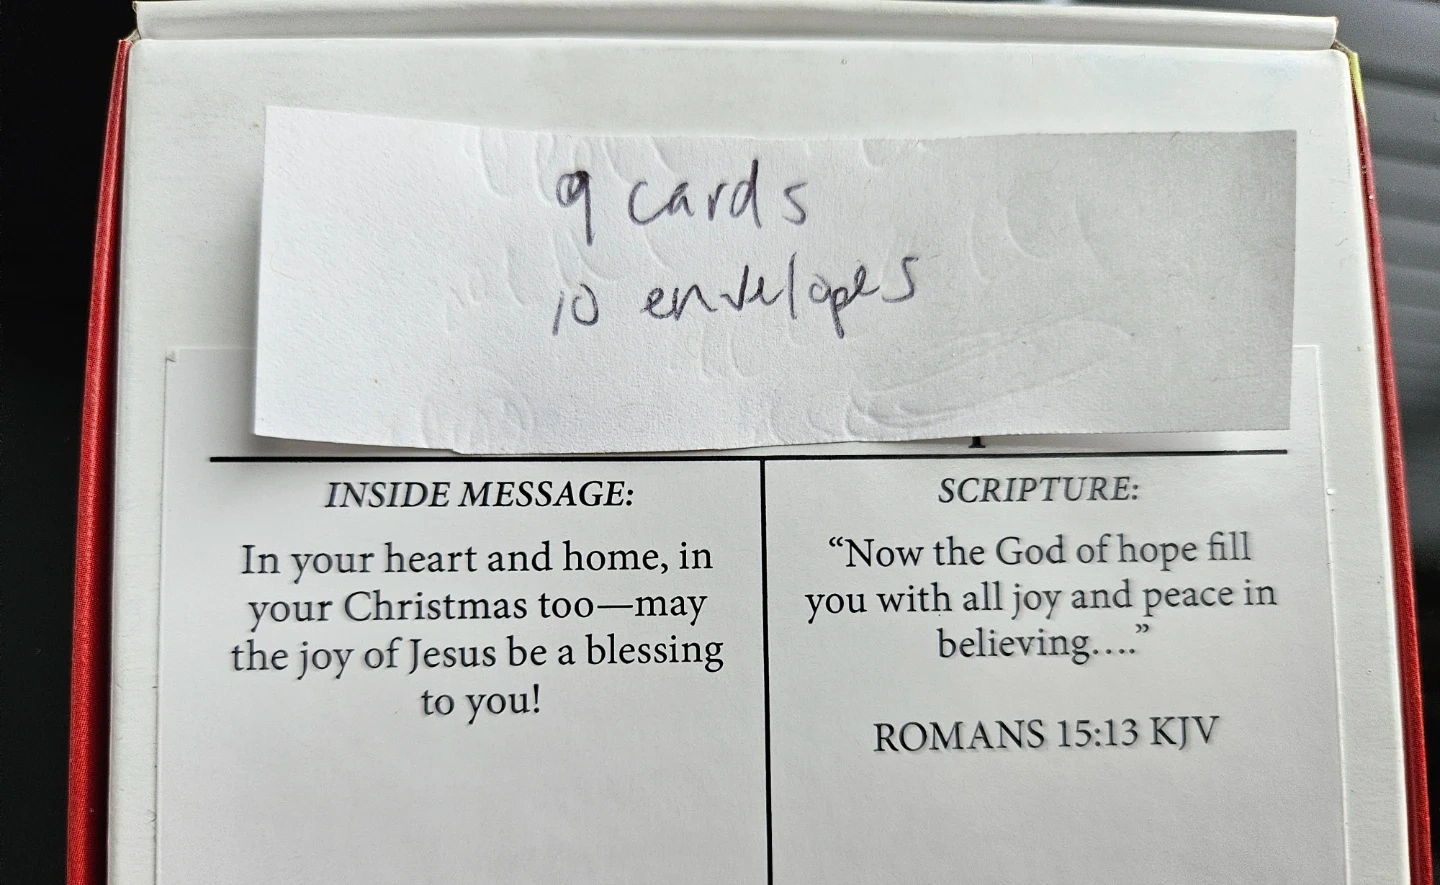 9 cards
10 envelopes
INSIDE MESSAGE:
In your heart and home, in
your Christmas too—may
the joy of Jesus be a blessing
to you!
SCRIPTURE:
“Now the God of hope fill
you with all joy and peace in
believing....”
ROMANS 15:13 KJV